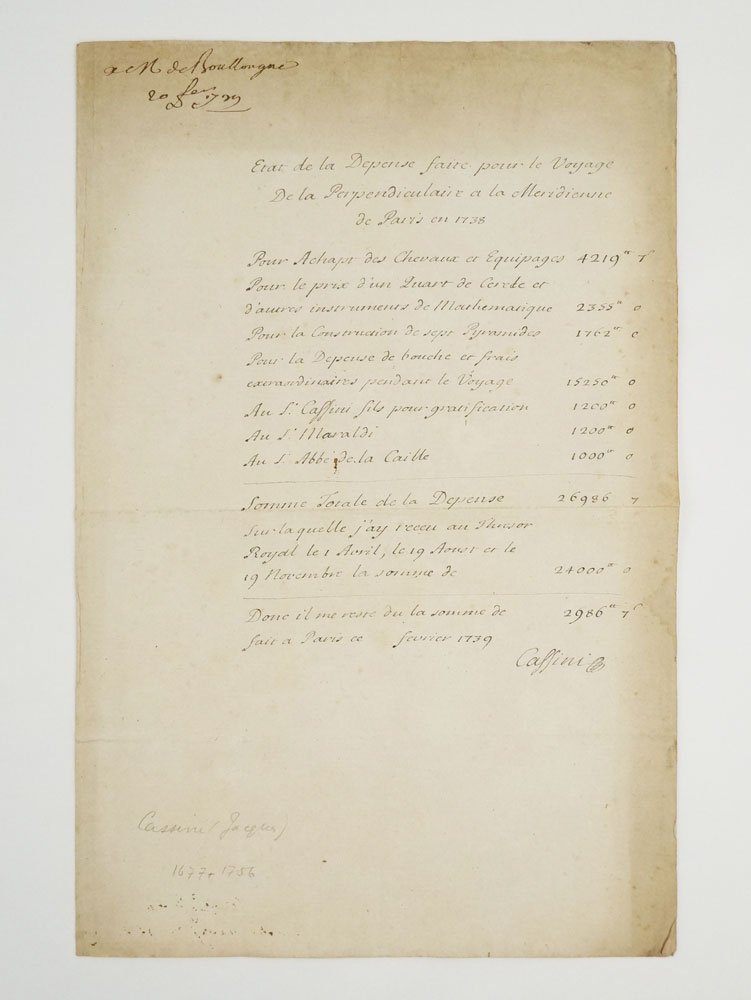 a M de Boullongne
20 fer 1739
Etat de la Depense faite pour le Voyage
De la Perpendiculaire a la Meridienne
de Paris en 1738
Pour Achapt des Chevaux et Equipages 4219tt 7s
Pour le prix d'un Quart de Cercle et
d'autres instruments de Mathematique 2355tt 0
Pour la Construction de sept Pyramides 1762tt 0
Pour la Depense de bouche et frais
extraordinaires pendant le Voyage 15250tt 0
Au Sr Cassini fils pour gratification 1200tt 0
Au Sr Maraldi 1200tt 0
Au Sr Abbé de la Caille 1000tt 0
Somme Totale de la Depense 26986 7
Sur laquelle j'ay receu au Thresor
Royal le 1 Avril, le 19 Aoust et le
19 Novembre la somme de 24000tt 0
Donc il me reste du la somme de 2986tt 7s
fait a Paris ce fevrier 1739
Cassini
Cassini (Jacques)
1677+1756